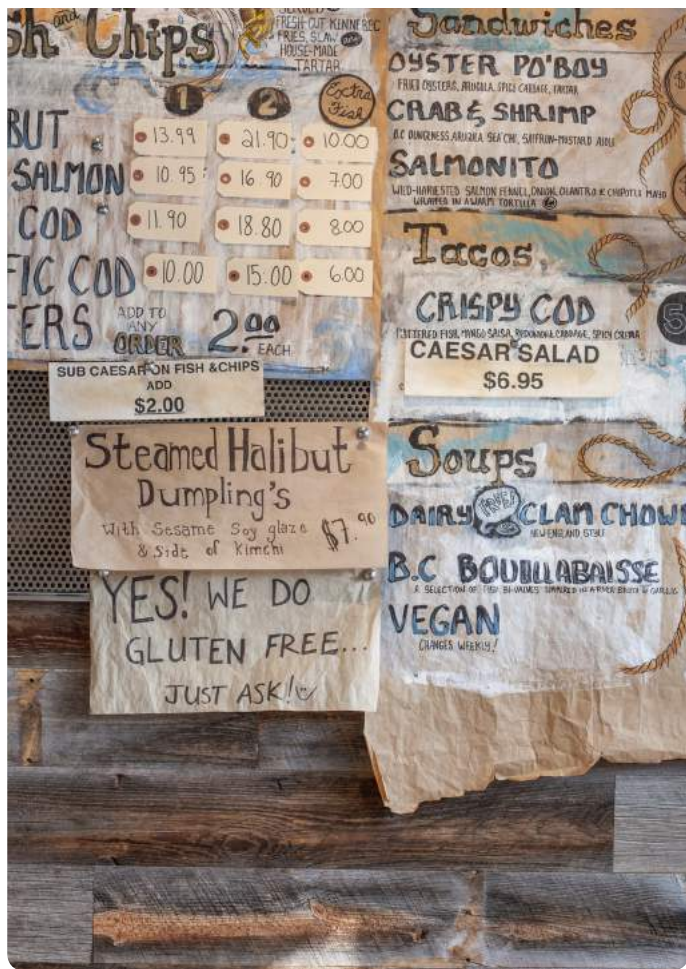 and
Chips
FRESH-CUT KENNEBEC
FRIES, SLAW
HOUSE-MADE
TARTAR
1 2 Extra Fish
BUT 13.99 21.90 10.00
SALMON 10.95 16.90 7.00
COD 11.90 18.80 8.00
FIC COD 10.00 15.00 6.00
ERS ADD TO ANY ORDER 2.00 EACH
SUB CAESAR ON FISH & CHIPS
ADD
$2.00
Steamed Halibut
Dumpling's
With Sesame Soy glaze
& Side of Kimchi
$7.90
YES! WE DO
GLUTEN FREE...
JUST ASK!
Sandwiches
OYSTER PO'BOY
FRIED OYSTERS, ARUGULA, SPICY CABBAGE, TARTAR
CRAB & SHRIMP
B.C DUNGENESS, ARUGULA, SAFFRON-MUSTARD AIOLI
SALMONITO
WILD-HARVESTED SALMON FENNEL, ONION, CILANTRO & CHIPOTLE MAYO
WRAPPED IN A WARM TORTILLA
Tacos
CRISPY COD
5
BATTERED FISH, MANGO SALSA, CABBAGE, SPICY CREMA
CAESAR SALAD
$6.95
Soups
DAIRY FREE! CLAM CHOW
NEW-ENGLAND STYLE
B.C BOUILLABAISSE
A SELECTION OF FISH, BI-VALVES SIMMERED IN A BROTH W GARLIC
VEGAN
CHANGES WEEKLY!